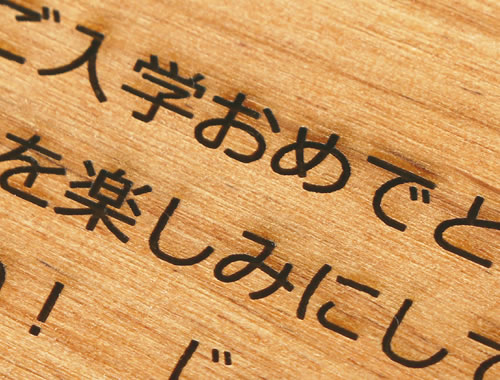 ご入学おめでと
を楽しみにして
！ じ